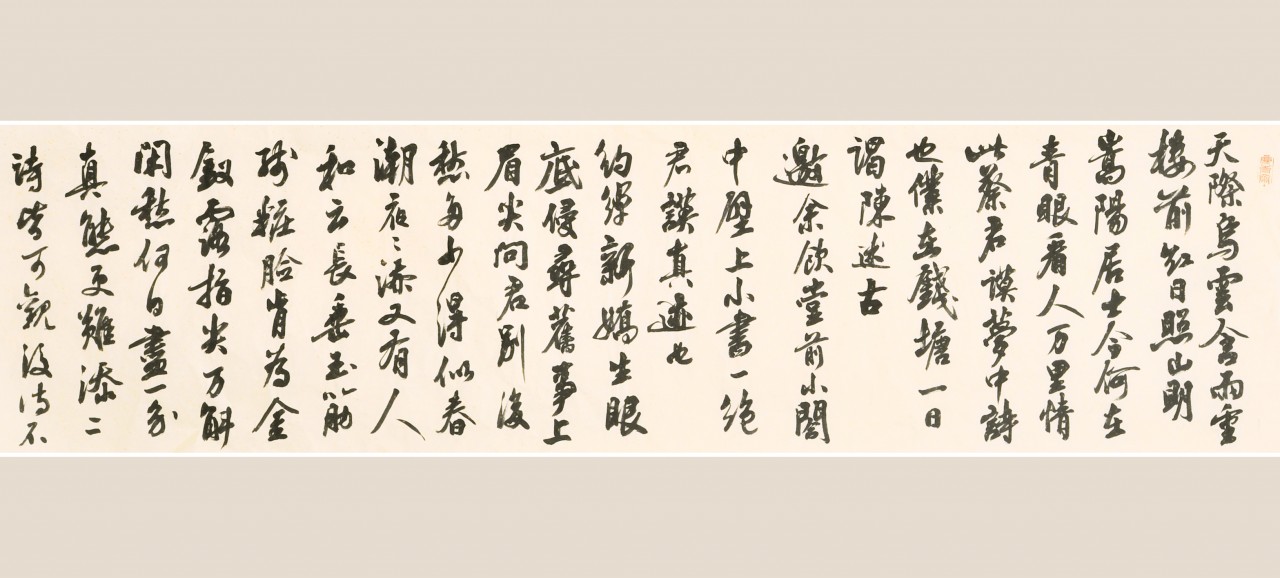 天際烏雲含雨重
樓前紅日照山明
嵩陽居士今何在
青眼看人万里情
此蔡君謨夢中詩
也僕在錢塘一日
謁陳述古
邀余飲堂前小閤
中壁上小書一絕
君謨真迹也
約綽新嬌生眼
底侵尋舊事上
眉尖問君別後
愁多少得似春
潮夜〻添又有人
和云長垂玉筋
殘粧臉肯為金
釵露指尖万斛
閑愁何日盡一分
真態更難添二
詩皆可觀後詩不